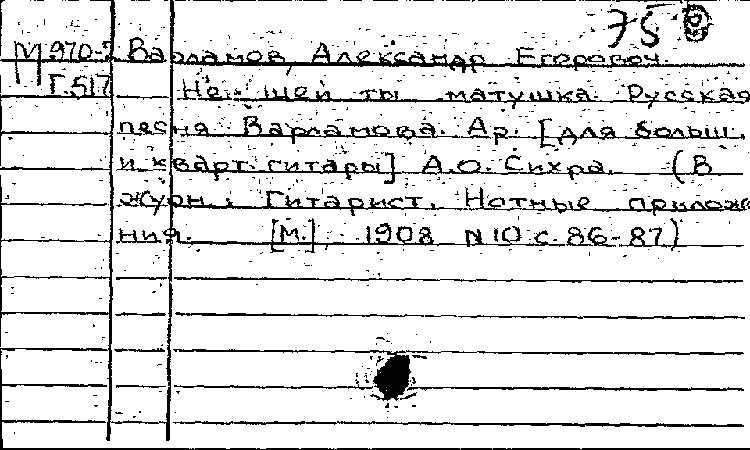 75
М 970-2 Варламов, Александр Егорович.
Г.517 Не шей ты матушка. Русская
песня Варламова. Ар. [для больш.
и кварт. гитары] А.О. Сихра. (В
журн.: Гитарист. Нотные приложе
ния. [М.], 1908 N 10 с. 86-87)